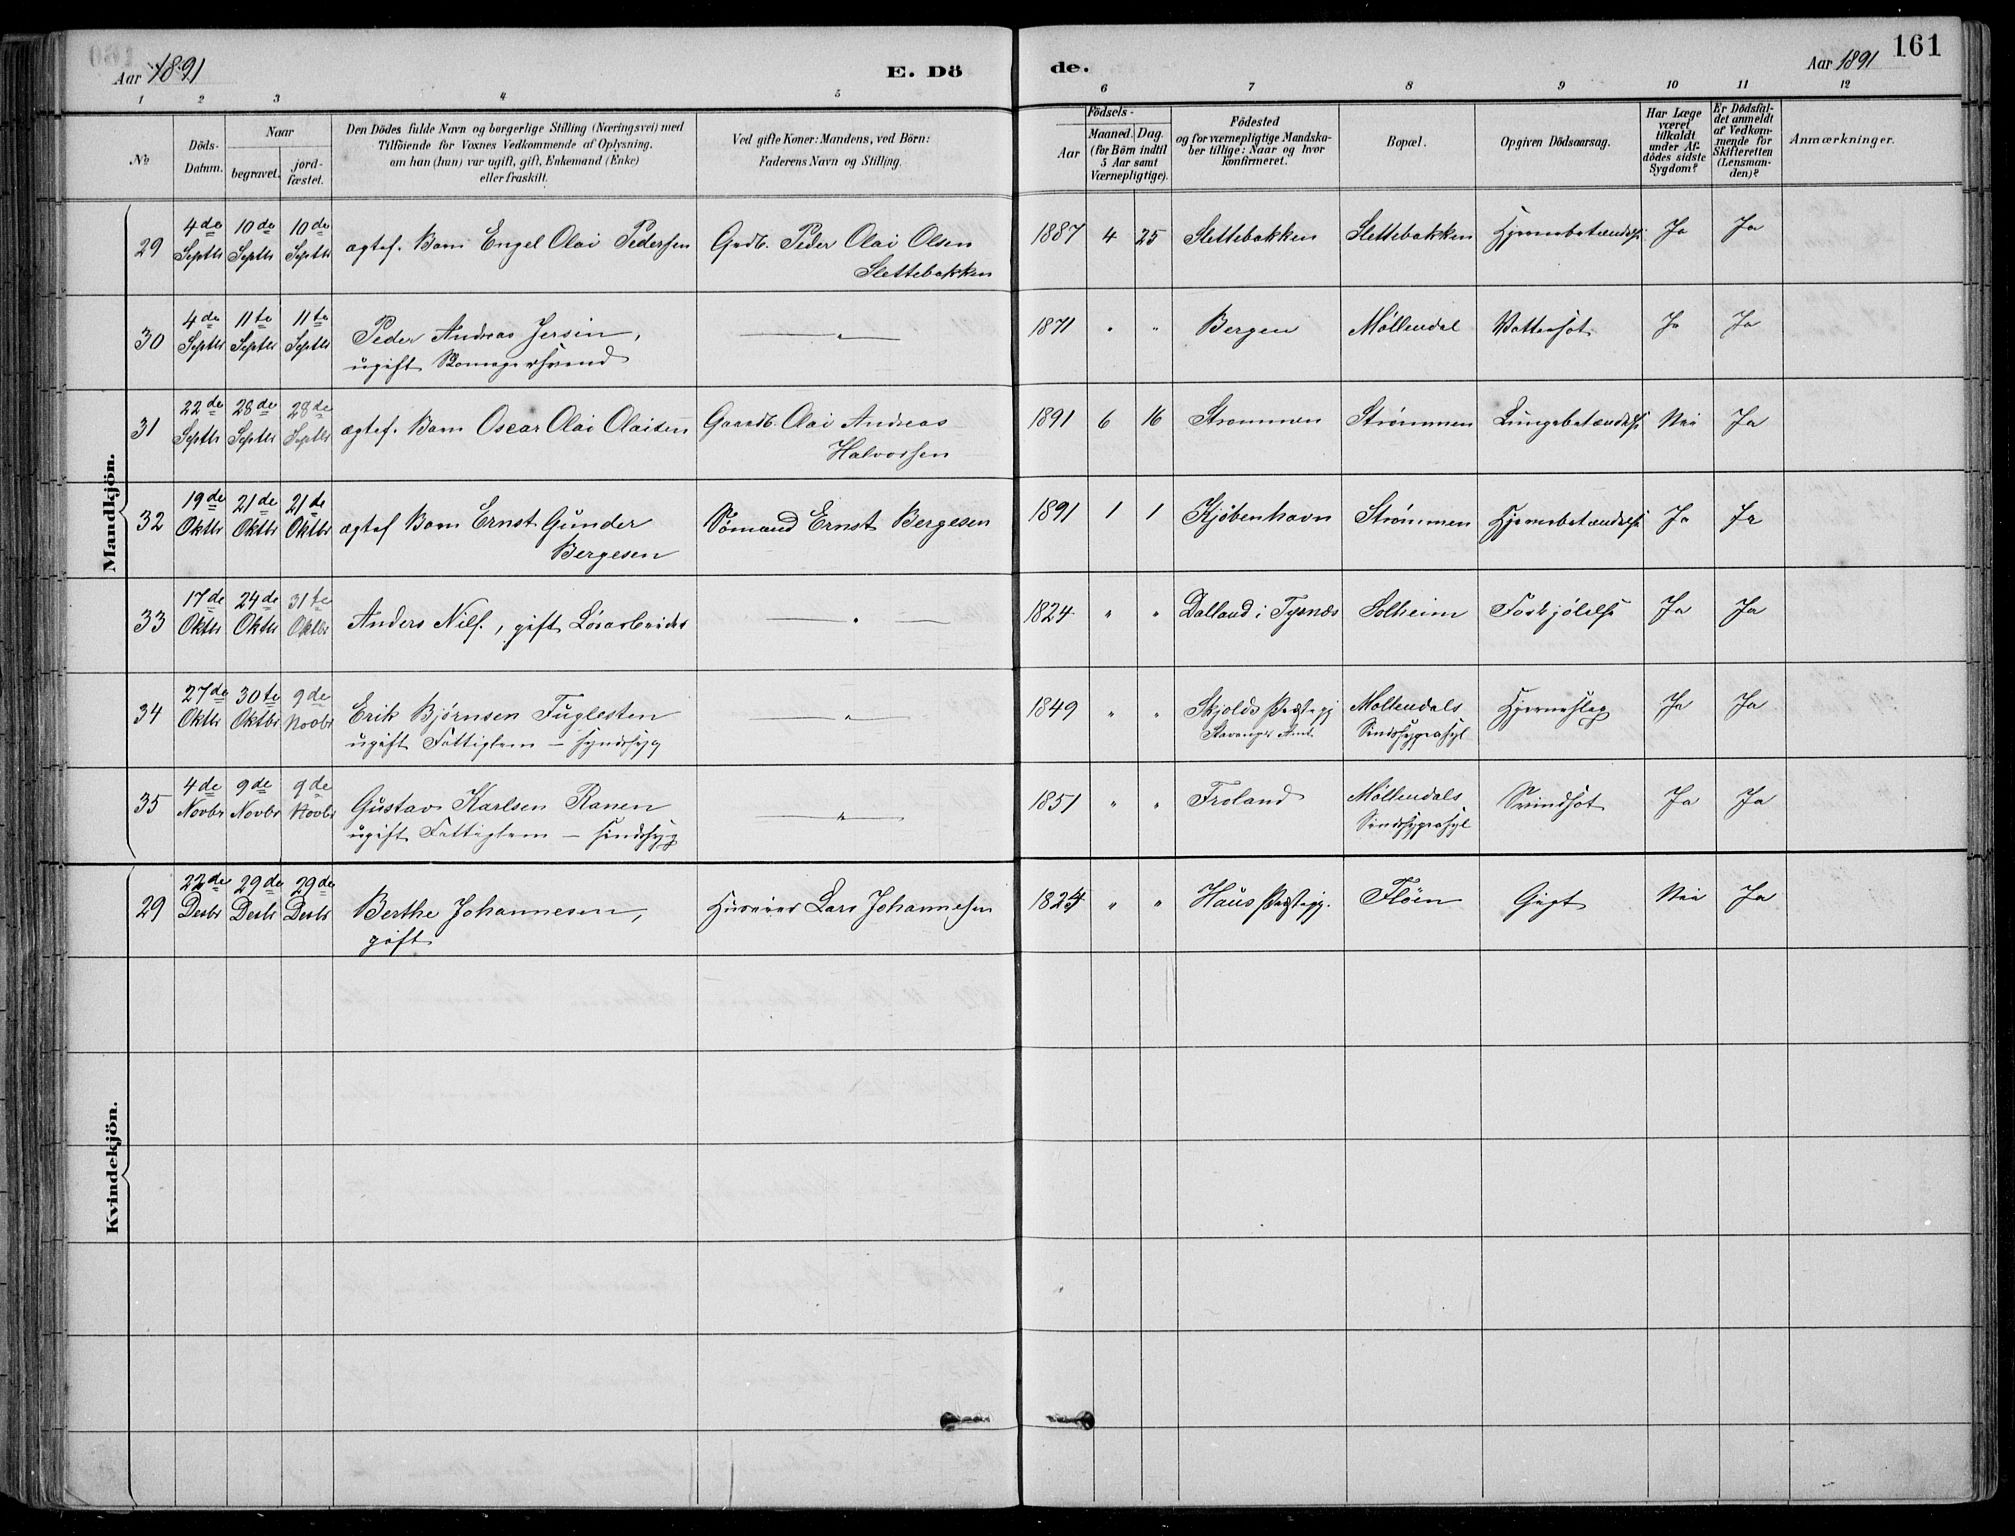 160
161
Aar 1891
E. Dö
de.
Aar 1891
1 2 3 4 5 6 7 8 9 10 11 12
No
Döds-
Datum.
Naar
begravet.
jord-
fæstet.
Den Dödes fulde Navn og borgerlige Stilling (Næringsvei) med
Tilföiende for Voxnes Vedkommende af Oplysning,
om han (hun) var ugift, gift, Enkemand (Enke)
eller fraskilt.
Ved gifte Koner: Mandens, ved Börn:
Faderens Navn og Stilling.
Födsels-
Aar
Maaned. Dag.
(for Börn indtil
5 Aar samt
Værnepligtige).
Födested
og for værnepligtige Mandska-
ber tillige: Naar og hvor
konfirmeret.
Bopæl.
Opgiven Dödsaarsag.
Har Læge
været
tilkaldt
under Af-
dödes sidste
Sygdom?
Er Dödsfal-
det anmeldt
af Vedkom-
mende for
Skifteretten
(Lensman-
den)?
Anmærkninger.
Mandkjön.
29 4de Septbr 10de Septbr 10de Septbr ægtef. Barn Engel Olai Pedersen Grdb. Peder Olai Olsen 1887 4 25 Slettebakken Slettebakken Hjernebetændelse Ja Ja
Slettebakken
30 4de Septbr 11te Septbr 11te Septbr Peder Andreas Jersin, — " — 1871 " " Bergen Møllendal Vattersot Ja Ja
ugift Bomagersvend
31 22de Septbr 28de Septbr 28de Septbr ægtef. Barn Oscar Olai Olaisen Gaardb. Olai Andreas 1891 6 16 Strømmen Strømmen Lungebetændelse Nei Ja
Halvorsen
32 19de Oktbr 21de Oktbr 21de Oktbr ægtef Barn Ernst Gunder Sømand Ernst Bergesen 1891 1 1 Kjøbenhavn Strømmen Hjernebetændelse Ja Ja
Bergesen
33 17de Oktbr 24de Oktbr 31te Oktbr Anders Nils., gift Løsarbeider — " — 1824 " " Dalland i Tysnæs Solheim Forkjølelse Ja Ja
34 27de Oktbr 30te Oktbr 9de Novbr Erik Bjørnsen Fuglesten — " — 1849 " " Skjolds Præstegj Møllendals Hjerneslag Ja Ja
ugift Fattiglem — syndssyg Stavanger Amt Sindssygeasyl
35 4de Novbr 9de Novbr 9de Novbr Gustav Karlsen Ranen — " — 1851 " " Froland Møllendals Svindsot Ja Ja
ugift Fattiglem — sindssyg Sindssygeasyl
Kvindekjön.
29 22de Desbr 29de Desbr 29de Desbr Berthe Johannesen, Huseier Lars Johannesen 1824 " " Haus Præstegj. Fløen Gigt Nei Ja
gift